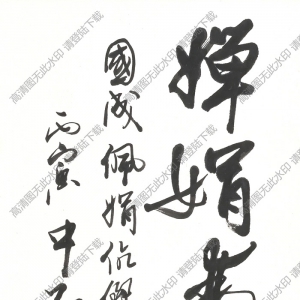 婵娟
國成佩娟伉儷
丙寅中
高清图无此水印 请登陆下载
高清图无此水印 请登陆下载
高清图无此水印 请登陆下载
高清图无此水印 请登陆下载